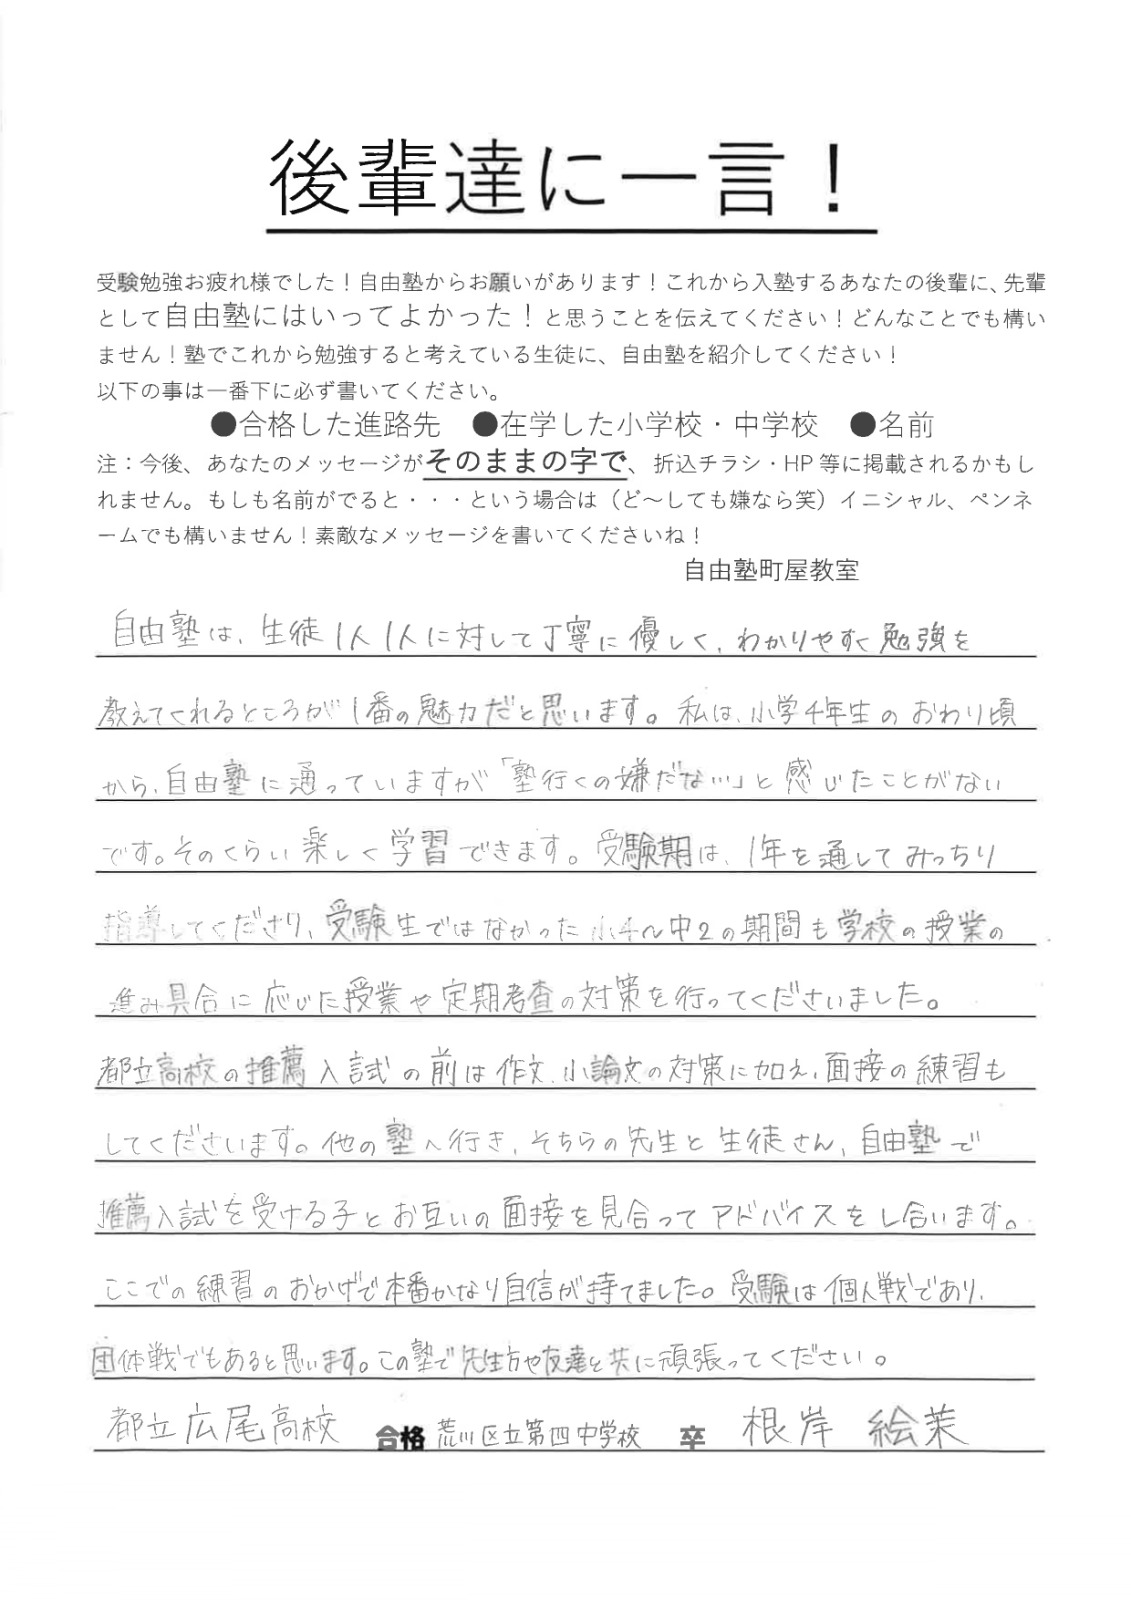 後輩達に一言！
受験勉強お疲れ様でした！自由塾からお願いがあります！これから入塾するあなたの後輩に、先輩
として自由塾にはいってよかった！と思うことを伝えてください！どんなことでも構い
ません！塾でこれから勉強すると考えている生徒に、自由塾を紹介してください！
以下の事は一番下に必ず書いてください。
●合格した進路先　●在学した小学校・中学校　●名前
注：今後、あなたのメッセージがそのままの字で、折込チラシ・HP 等に掲載されるかもし
れません。もしも名前がでると・・・という場合は（ど～しても嫌なら笑）イニシャル、ペンネ
ームでも構いません！素敵なメッセージを書いてくださいね！
自由塾町屋教室
自由塾は、生徒1人1人に対して丁寧に優しく、わかりやすく勉強を
教えてくれるところが1番の魅力だと思います。私は、小学4年生のおわり頃
から、自由塾に通っていますが「塾行くの嫌だな…」と感じたことがない
です。そのくらい楽しく学習できます。受験期は、1年を通してみっちり
指導してくださり、受験生ではなかった小4〜中2の期間も学校の授業の
進み具合に応じた授業や定期考査の対策を行ってくださいました。
都立高校の推薦入試の前は作文、小論文の対策に加え、面接の練習も
してくださいます。他の塾へ行き、そちらの先生と生徒さん、自由塾で
推薦入試を受ける子とお互いの面接を見合ってアドバイスをし合います。
ここでの練習のおかげで本番かなり自信が持てました。受験は個人戦であり、
団体戦でもあると思います。この塾で先生方や友達と共に頑張ってください。
都立広尾高校　合格　荒川区立第四中学校　卒　根岸　絵茉